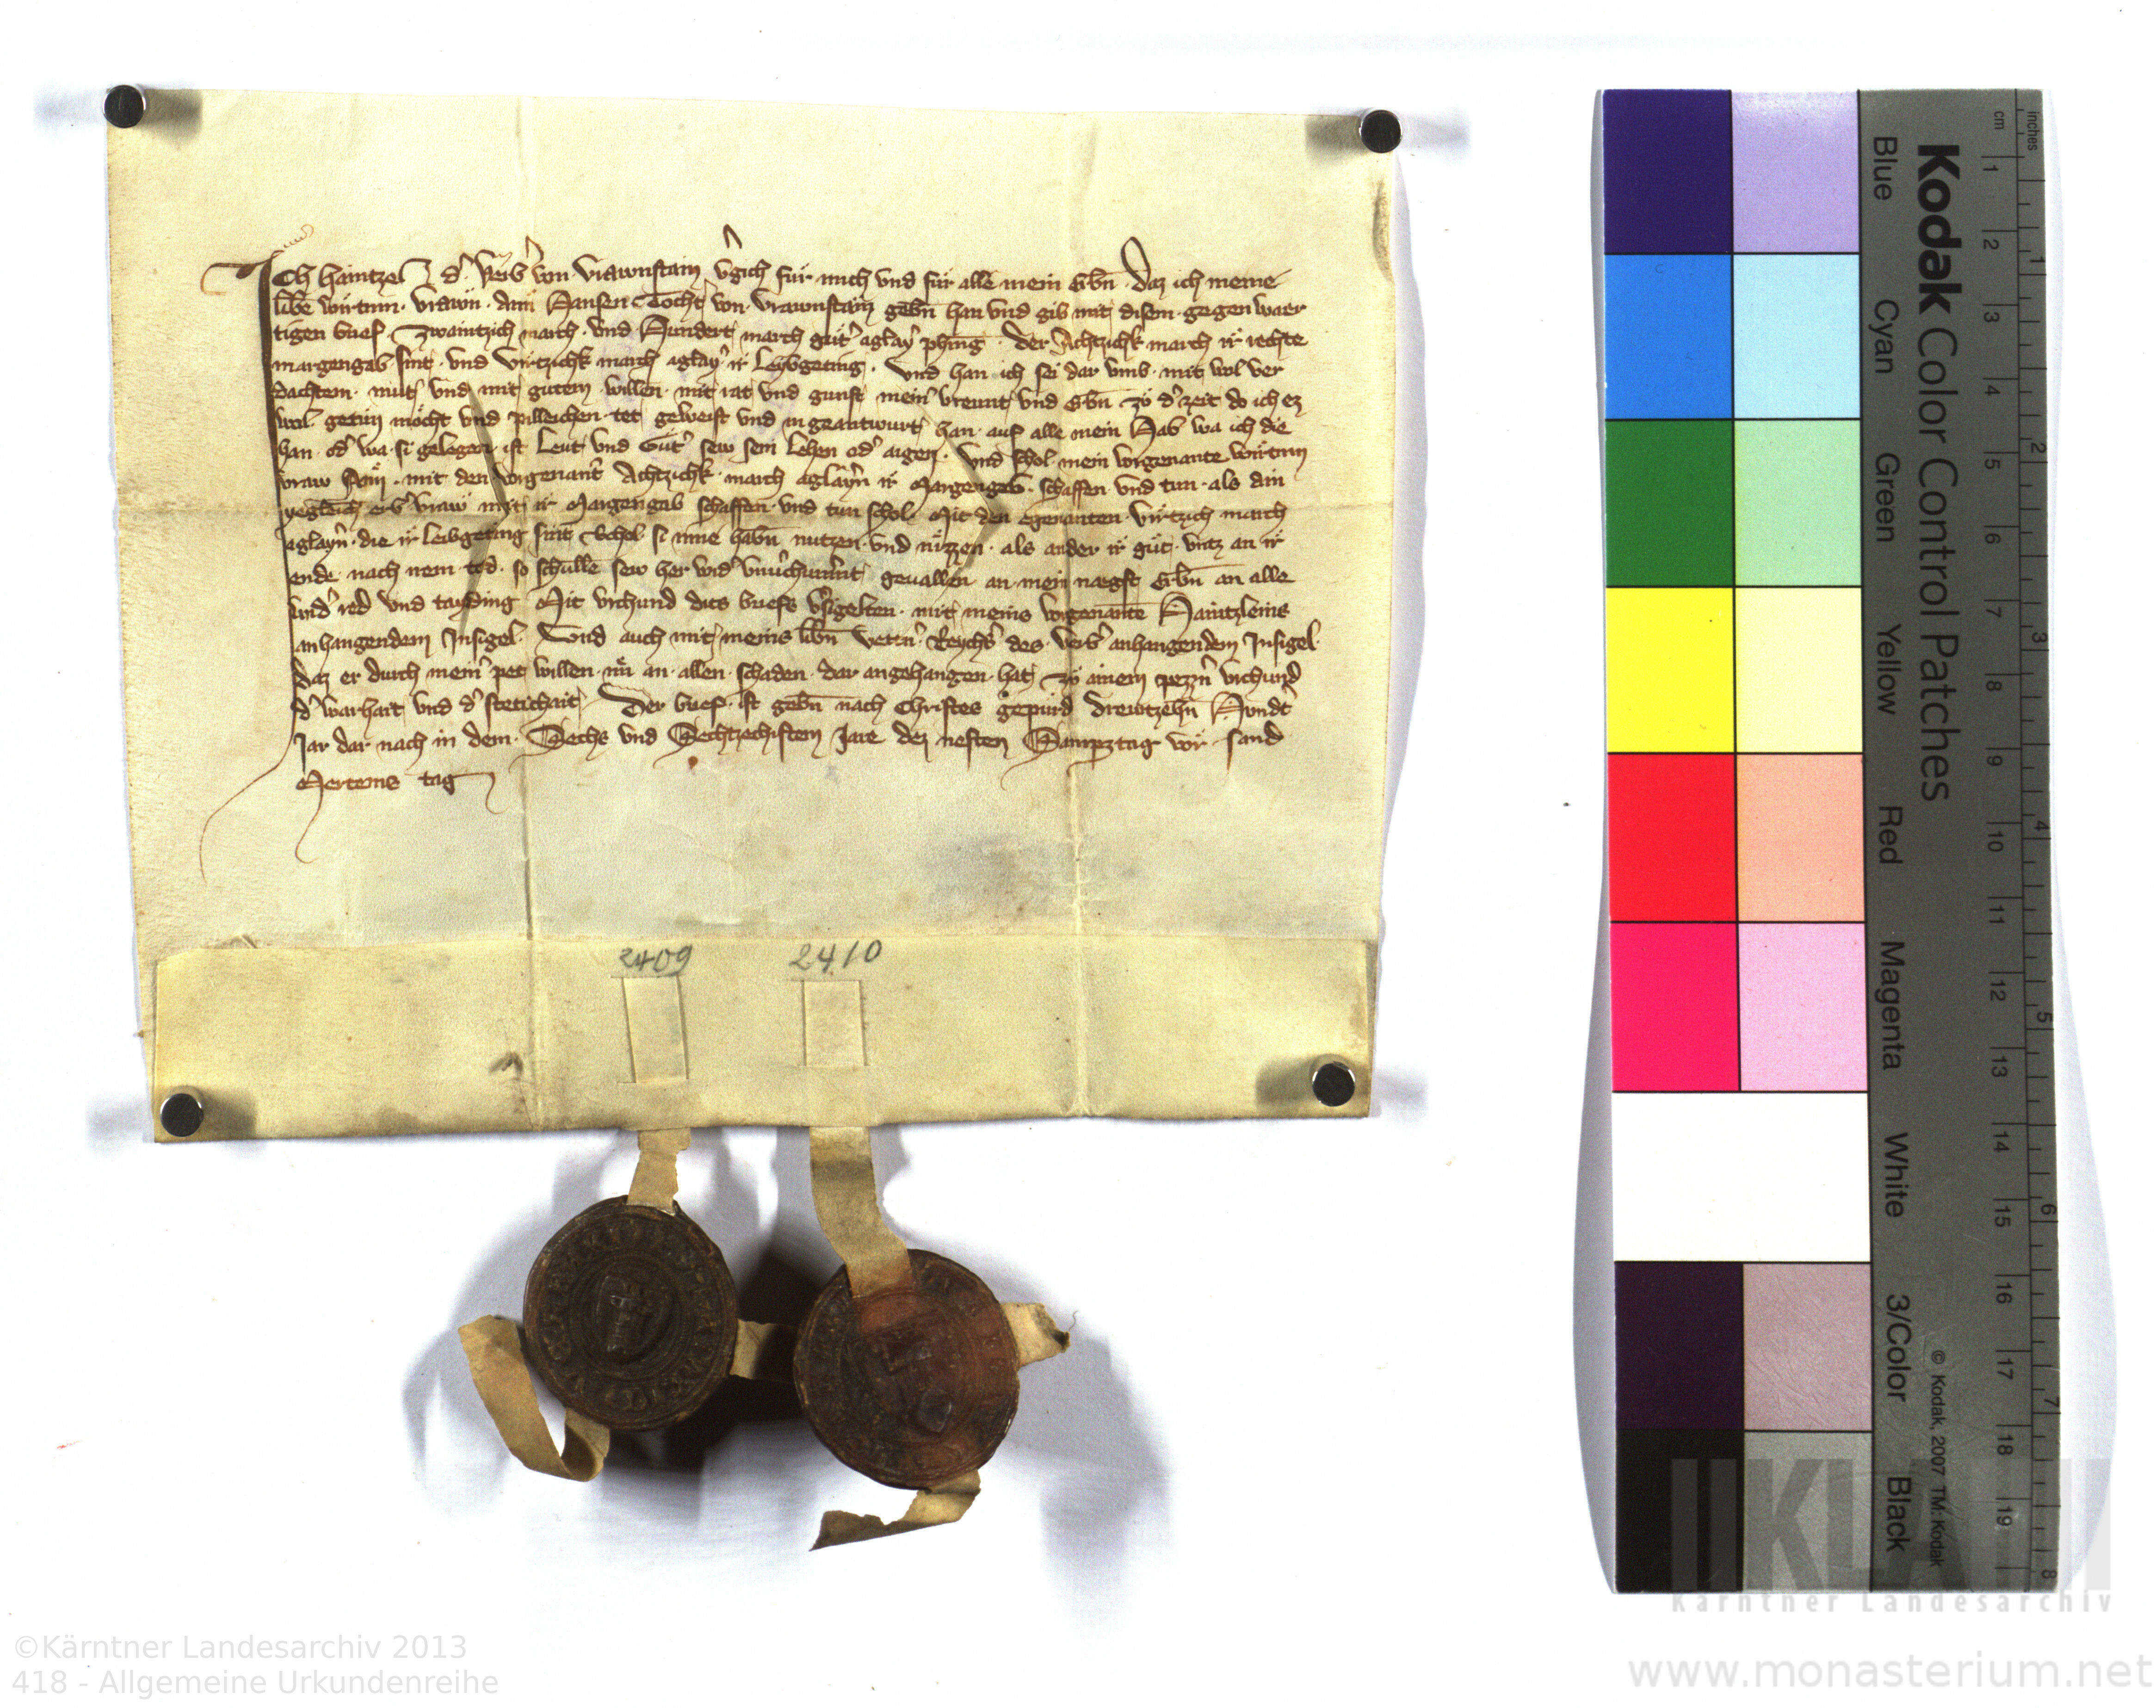 Ich haintzel d' von vrawnstain v'gich für mich vnd für alle mein Erbn Daz ich meine
libe wirtinn vrawn ann Hansen Tocht' von vrawnstain gebn han vnd gib mit disem gegen waer
tigen brief zwaintzich march vnd Hundert march gut' aglay' phing Der Achtzichk march ir rechte
margengab sint vnd virtzichk march aglay' ir leybgeting vnd han ich sei dar vmb mit wol ver
dachtem mut vnd mit gutem willen mit rat vnd gunst mein' vreunt vnd Erbn zů d' zeit do ich ez
wol getun mocht vnd pilleichen tet geweist vnd in geantwurt han auf alle mein Hab wa ich die
han od' wa si gelegen ist leut vnd Gut' sew sein lehen od' aigen vnd schol mein vorgenante wirtinn
vraw mit den vorgenant Achtzichk march aglayr' ir Margengab schaffen vnd tun als ain
yegleich erb' vraw mit ir Margengab schaffen vnd tun schol Mit den egenanten virtzich march
aglayr' die ir leibgeting sint Schol si inne habn nutzen vnd nizzen als ander ir gut vntz an ir
ende nach irem tod so schulle sew her wid' geuallen an mein naegst Erbn an alle
wid' red vnd tayding Mit vrchund dits briefs v'sigelten mit meins vorgenante Haintzleins
anhangendem Insigel Vnd auch mit meins libn vettern Reych' des anhangendem Insigel
Daz er durch mein' pet willen im an allen schaden dar angehangen hat zů ainem pezzern vrchund
d' warhait vnd d' stetichait Der brief ist gebn nach Christes gepurd Drewtzehn Hundt
Jar dar nach in dem Sechs vnd Sechtzechistem Jare dez nesten Sampztag vor sand
Mertems tag
2409 2410
Kodak Color Control Patches
Blue Cyan Green Yellow Red Magenta White 3/Color Black
inches 1 2 3 4 5 6 7 8
cm 1 2 3 4 5 6 7 8 9 10 11 12 13 14 15 16 17 18 19
© Kodak, 2007 TM: Kodak
KLA
Kärntner Landesarchiv
©Kärntner Landesarchiv 2013
418 - Allgemeine Urkundenreihe
www.monasterium.net